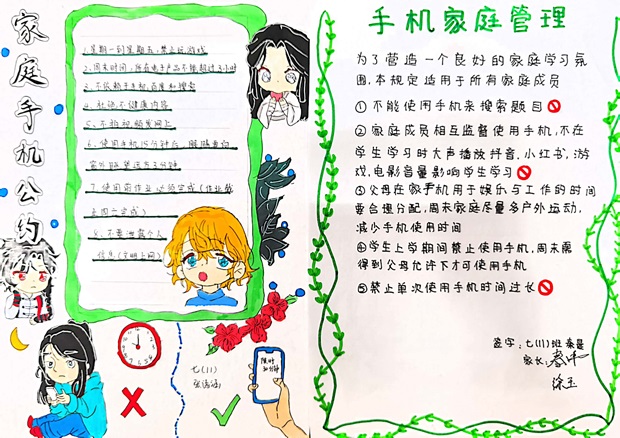 家庭手机公约
1.星期一到星期五,禁止玩游戏
2.周末时间:所有电子产品不能超过3小时
3.不依赖于手机,百度和搜索
4.拒绝不健康内容
5.不拍视频发网上
6.使用手机15分钟后,眼睛看向
窗外眺望远方3分钟
7.使用前作业必须完成(作业截
周六完成)
8.不要泄露个人
信息(文明上网)
七(11)
限时
30分钟
手机家庭管理
为了营造一个良好的家庭学习氛
围,本规定适用于所有家庭成员
①不能使用手机来搜索题目
②家庭成员相互监督使用手机,不在
学生学习时大声播放抖音,小红书,游
戏,电影音量影响学生学习
③父母在家手机用于娱乐与工作的时间
要合理分配,周末家庭尽量多户外运动,
减少手机使用时间
④学生上学期间禁止使用手机,周末需
得到父母允许下才可使用手机
⑤禁止单次使用手机时间过长
签字:七(11)班秦曼
家长: